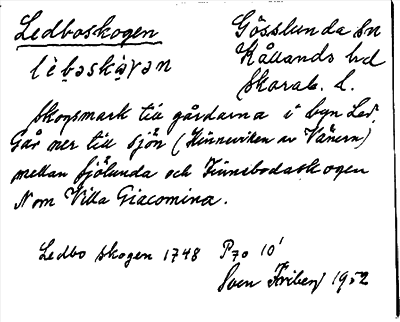 Ledboskogen
Gösslunda sn
lèbɔskàɣən
Kållands hd
Skarab. l.
Skogsmark till gårdarna i byn Led.
Går ner till sjön (Kinneviken av Vänern)
mellan Sjölunda och Finnebodaskogen
N om Villa Giacomina.
Ledbo skogen 1748 P70 10'
Sven Friberg 1952